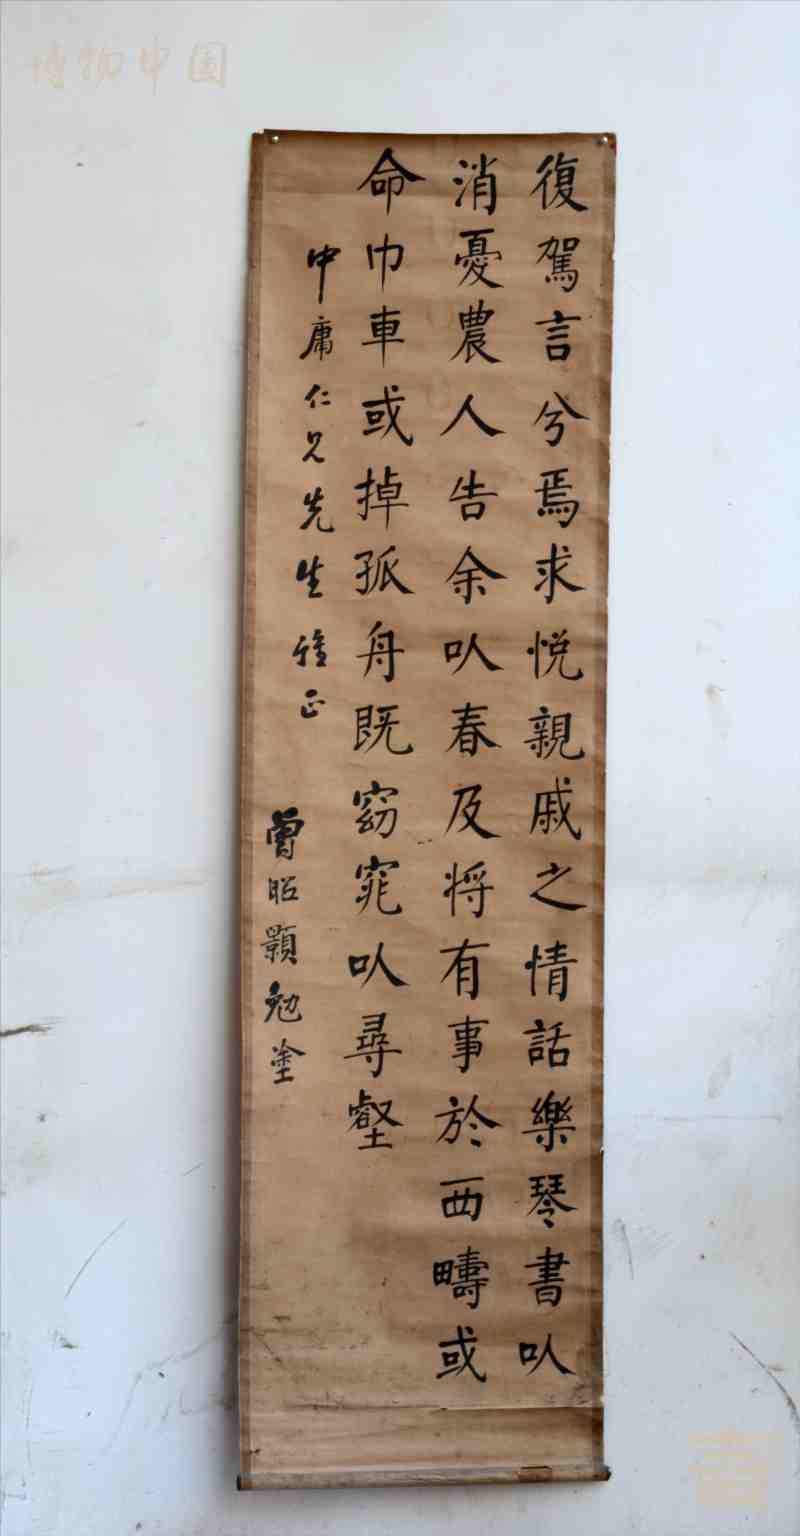 博物中国
復駕言兮焉求悅親戚之情話樂琴書以
消憂農人告余以春及將有事於西疇或
命巾車或掉孤舟既窈窕以尋壑
中庸仁兄先生雅正
曾昭顥勉塗